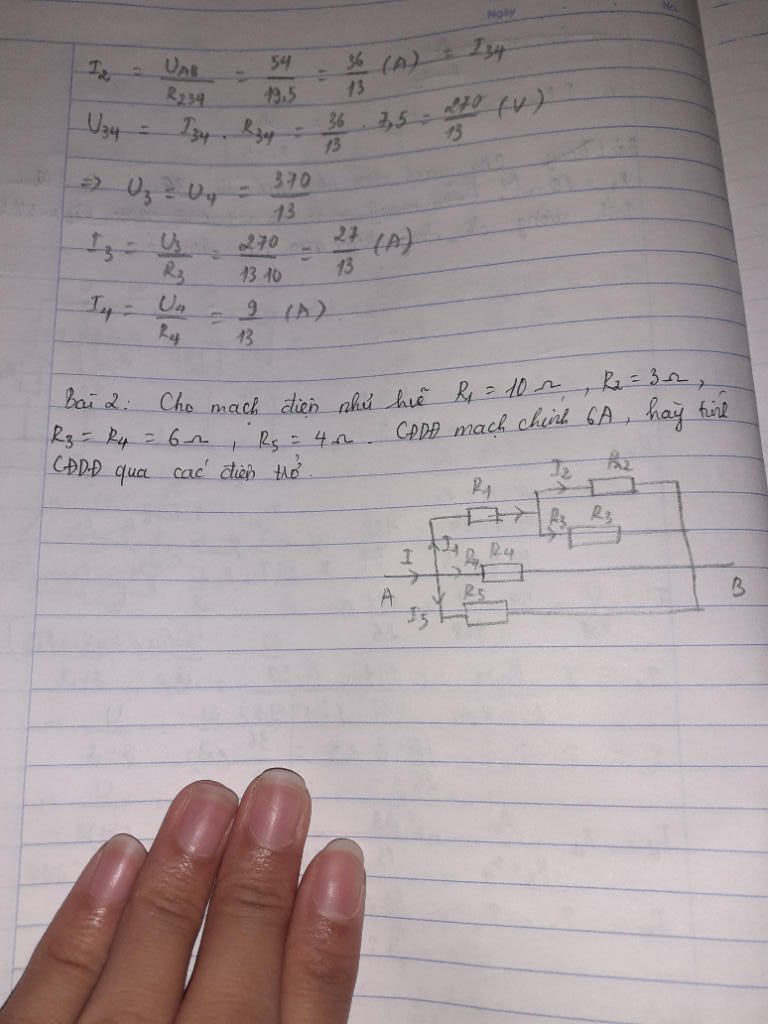 Ngày
No.
I2 = UAB/R234 = 54/19,5 = 36/13 (A) = I34
U34 = I34 . R34 = 36/13 . 7,5 = 270/13 (V)
=> U3 = U4 = 370/13
I3 = U3/R3 = 270/13.10 = 27/13 (A)
I4 = U4/R4 = 9/13 (A)
Bài 2: Cho mạch điện như hĩe R1 = 10 Ω , R2 = 3 Ω ,
R3 = R4 = 6 Ω , R5 = 4 Ω . CĐDĐ mạch chính 6A , hãy tính
CĐDĐ qua các điện trở.
I2 R2
R1
R3 R3
I I1 R4 R4
A B
I5 R5